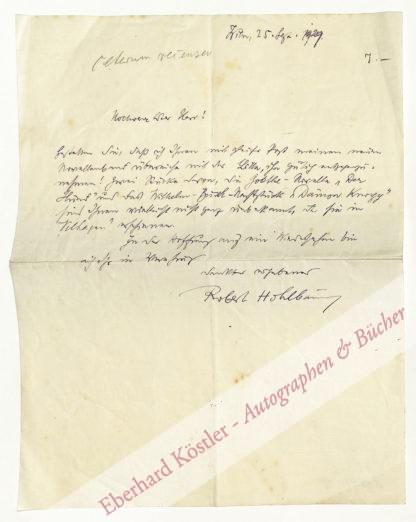 Wien, 25. Sept. 1929
7.–
Hochverehrter Herr!
Gestatten Sie, daß ich Ihnen mit gleicher Post meinen neuen
Novellenband überreiche mit der Bitte, ihn gütig entgegenzu-
nehmen! Zwei Stücke davon, die Goethe-Novelle „Der
und das Wilhelm
sind Ihnen vielleicht nicht ganz unbekannt, da sie in
Velhagen erschienen.
In der Hoffnung auf ein Wiedersehen bin
ich in Verehrung
dankbar ergebener
Robert Hohlbaum
Eberhard Köstler - Autographen & Bücher